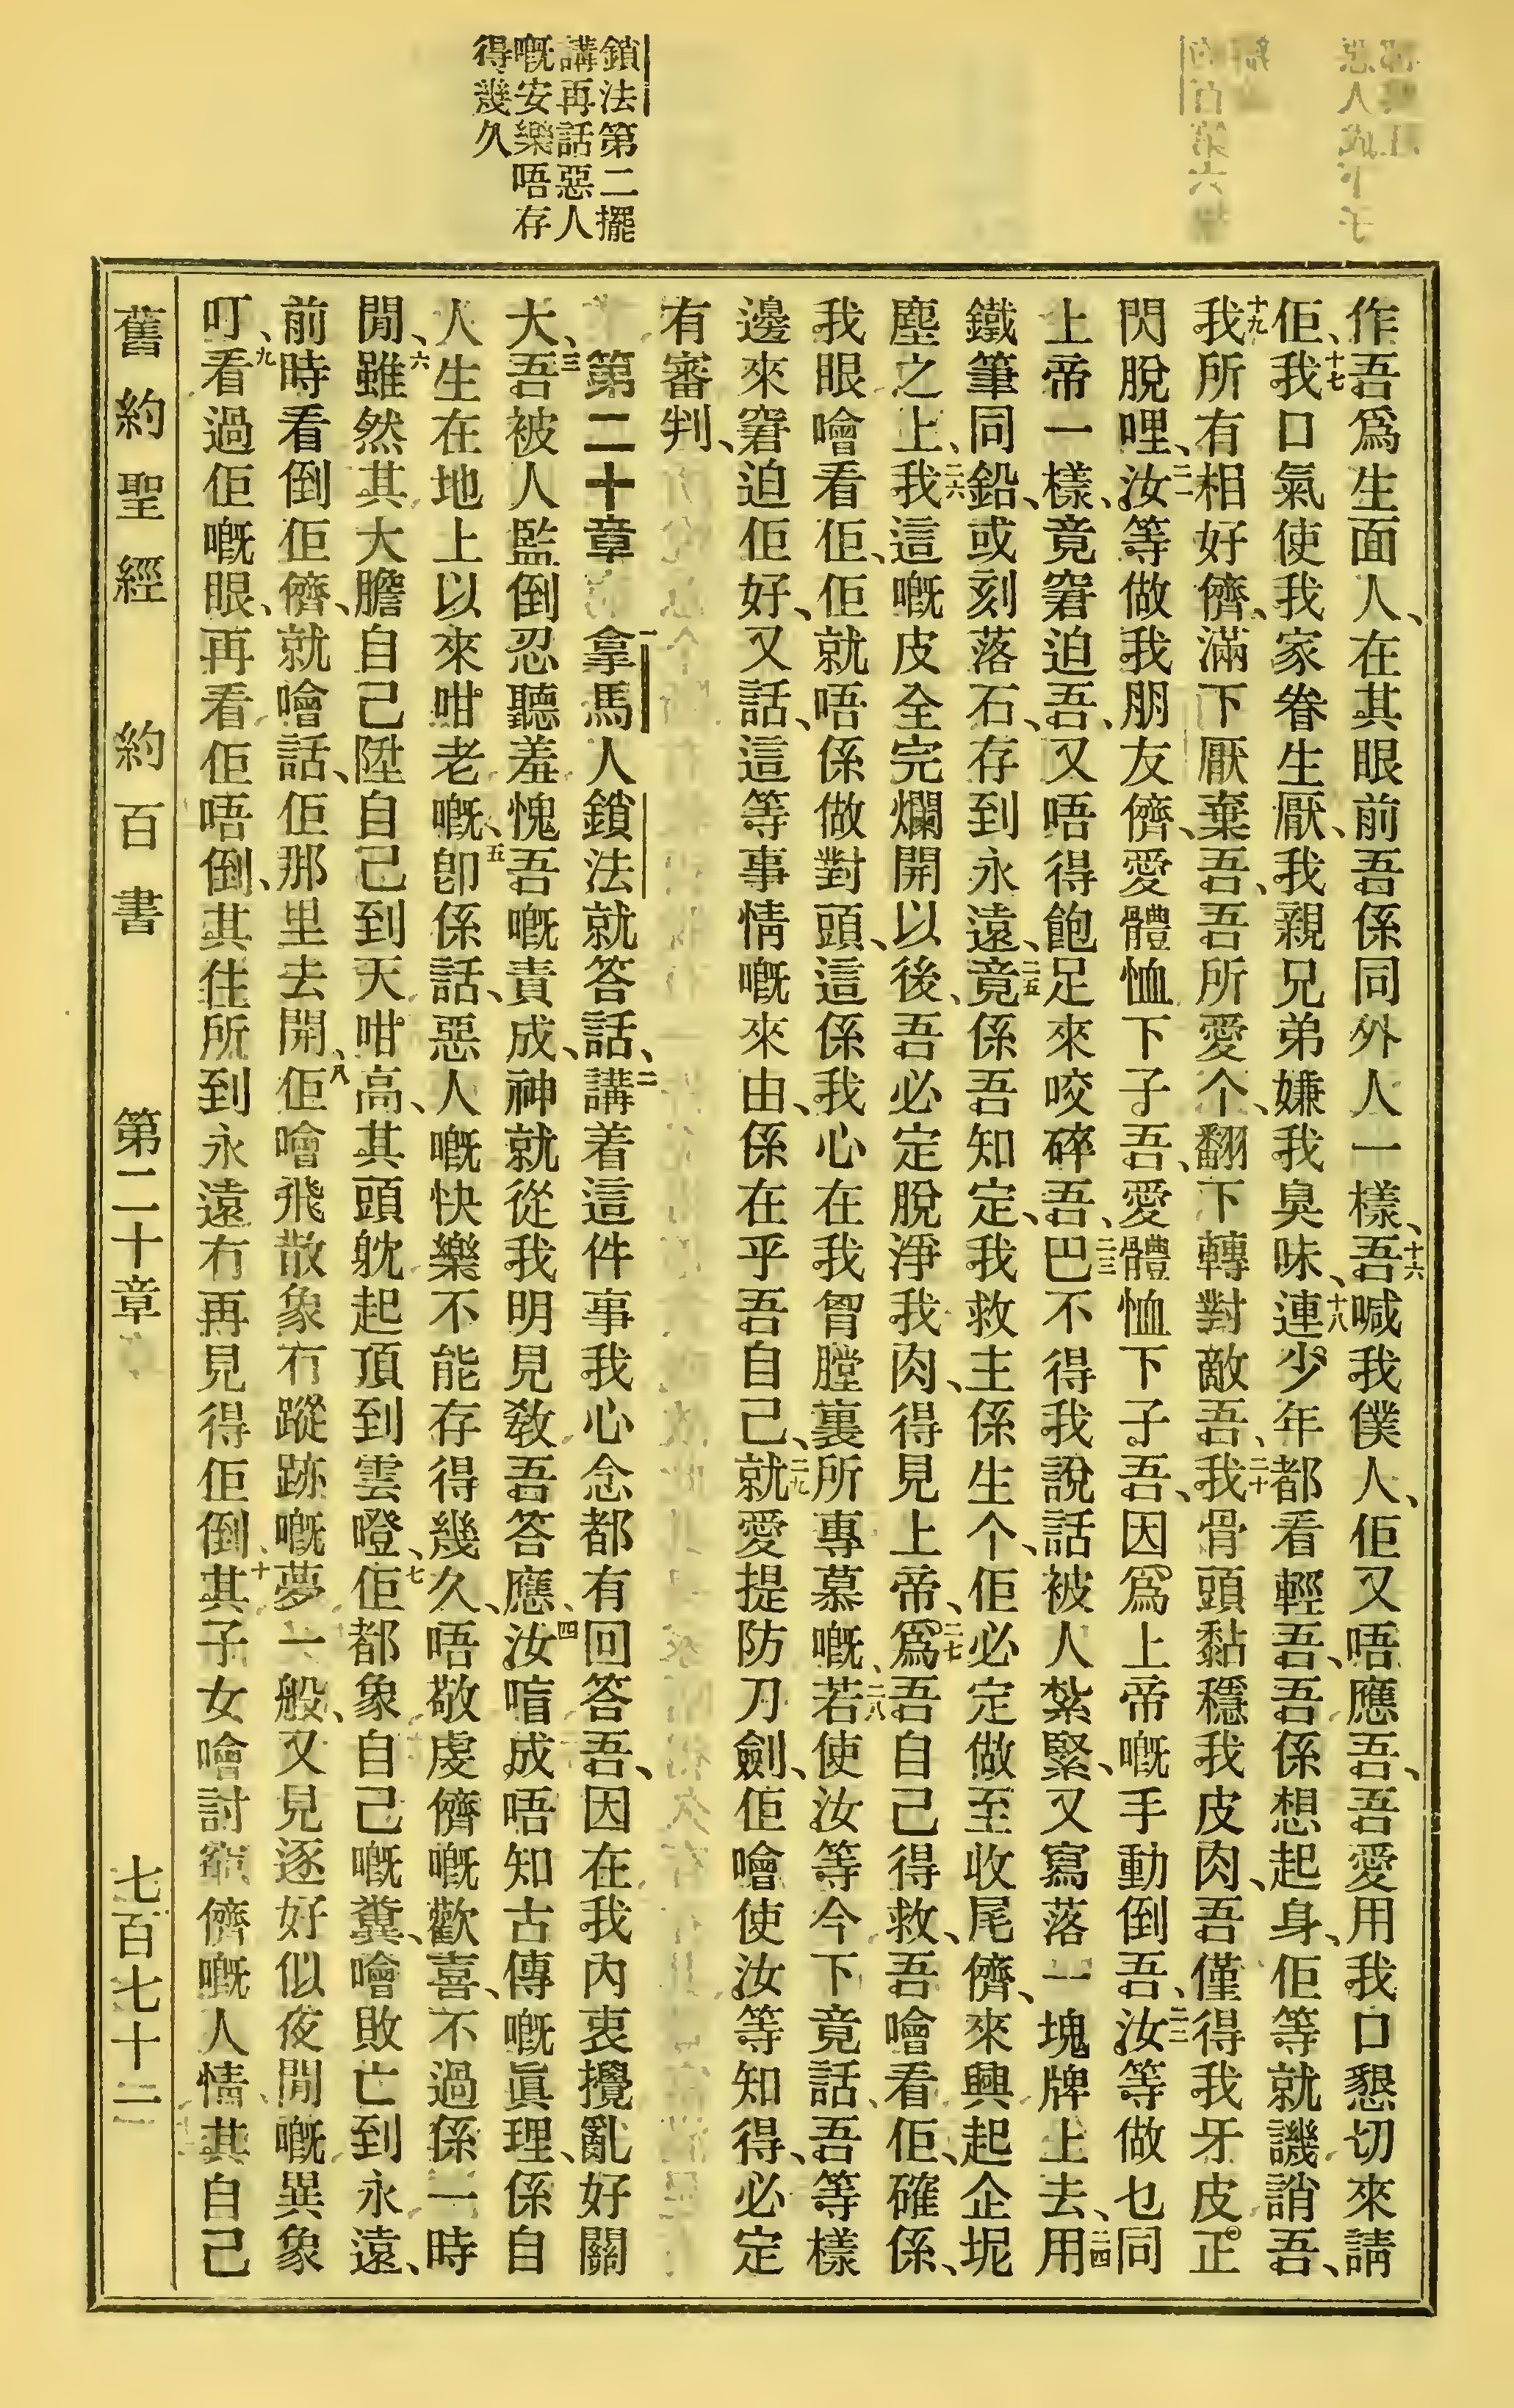 鎖法第二擺
講再話惡人
嘅安樂唔存
得幾久
作吾爲生面人、在其眼前吾係同外人一樣、十六吾喊我僕人、佢又唔應吾、吾愛用我口懇切來請
佢、十七我口氣使我家眷生厭、我親兄弟嫌我臭味、十八連少年都看輕吾、吾係想起身、佢等就譏誚吾、
十九我所有相好儕、滿下厭棄吾、吾所愛个、翻下轉對敵吾、二十我骨頭黏穩我皮肉、吾僅得我牙皮正
閃脫哩、二一汝等做我朋友儕、愛體恤下子吾、愛體恤下子吾、因爲上帝嘅手動倒吾、二二汝等做乜同
上帝一樣、竟窘迫吾、又唔得飽足來咬碎吾、二三巴不得我說話被人紮緊、又寫落一塊牌上去、二四用
鐵筆同鉛、或刻落石、存到永遠、二五竟係吾知定、我救主係生个、佢必定做至收尾儕、來興起企坭
塵之上、二六我這嘅皮全完爛開以後、吾必定脫淨我肉、得見上帝、二七爲吾自己得救、吾噲看佢、確係、
我眼噲看佢、佢就唔係做對頭、這係我心在我胷膛裏所專慕嘅、二八若使汝等今下竟話、吾等樣
邊來窘迫佢好、又話、這等事情嘅來由、係在乎吾自己、二九就愛提防刀劍、佢噲使汝等知得、必定
有審判、
第二十章 一拿馬人鎖法就答話、二講着這件事我心念都有回答吾、因在我內衷攪亂好關
大、三吾被人監倒忍聽羞愧吾嘅責成、神就從我明見敎吾答應、四汝喑成唔知古傳嘅眞理、係自
人生在地上以來咁老嘅、五卽係話、惡人嘅快樂不能存得幾久、唔敬虔儕嘅歡喜、不過係一時
閒、六雖然其大膽自己陞自己到天咁高、其頭躭起頂到雲噔、七佢都象自己嘅糞、噲敗亡到永遠、
前時看倒佢儕、就噲話、佢那里去開、八佢噲飛散象冇蹤跡嘅夢一般、又見逐好似夜間嘅異象
叮、九看過佢嘅眼、再看佢唔倒、其住所到永遠冇再見得佢倒、十其子女噲討窮儕嘅人情、其自己
舊約聖經 約百書 第二十章 七百七十二